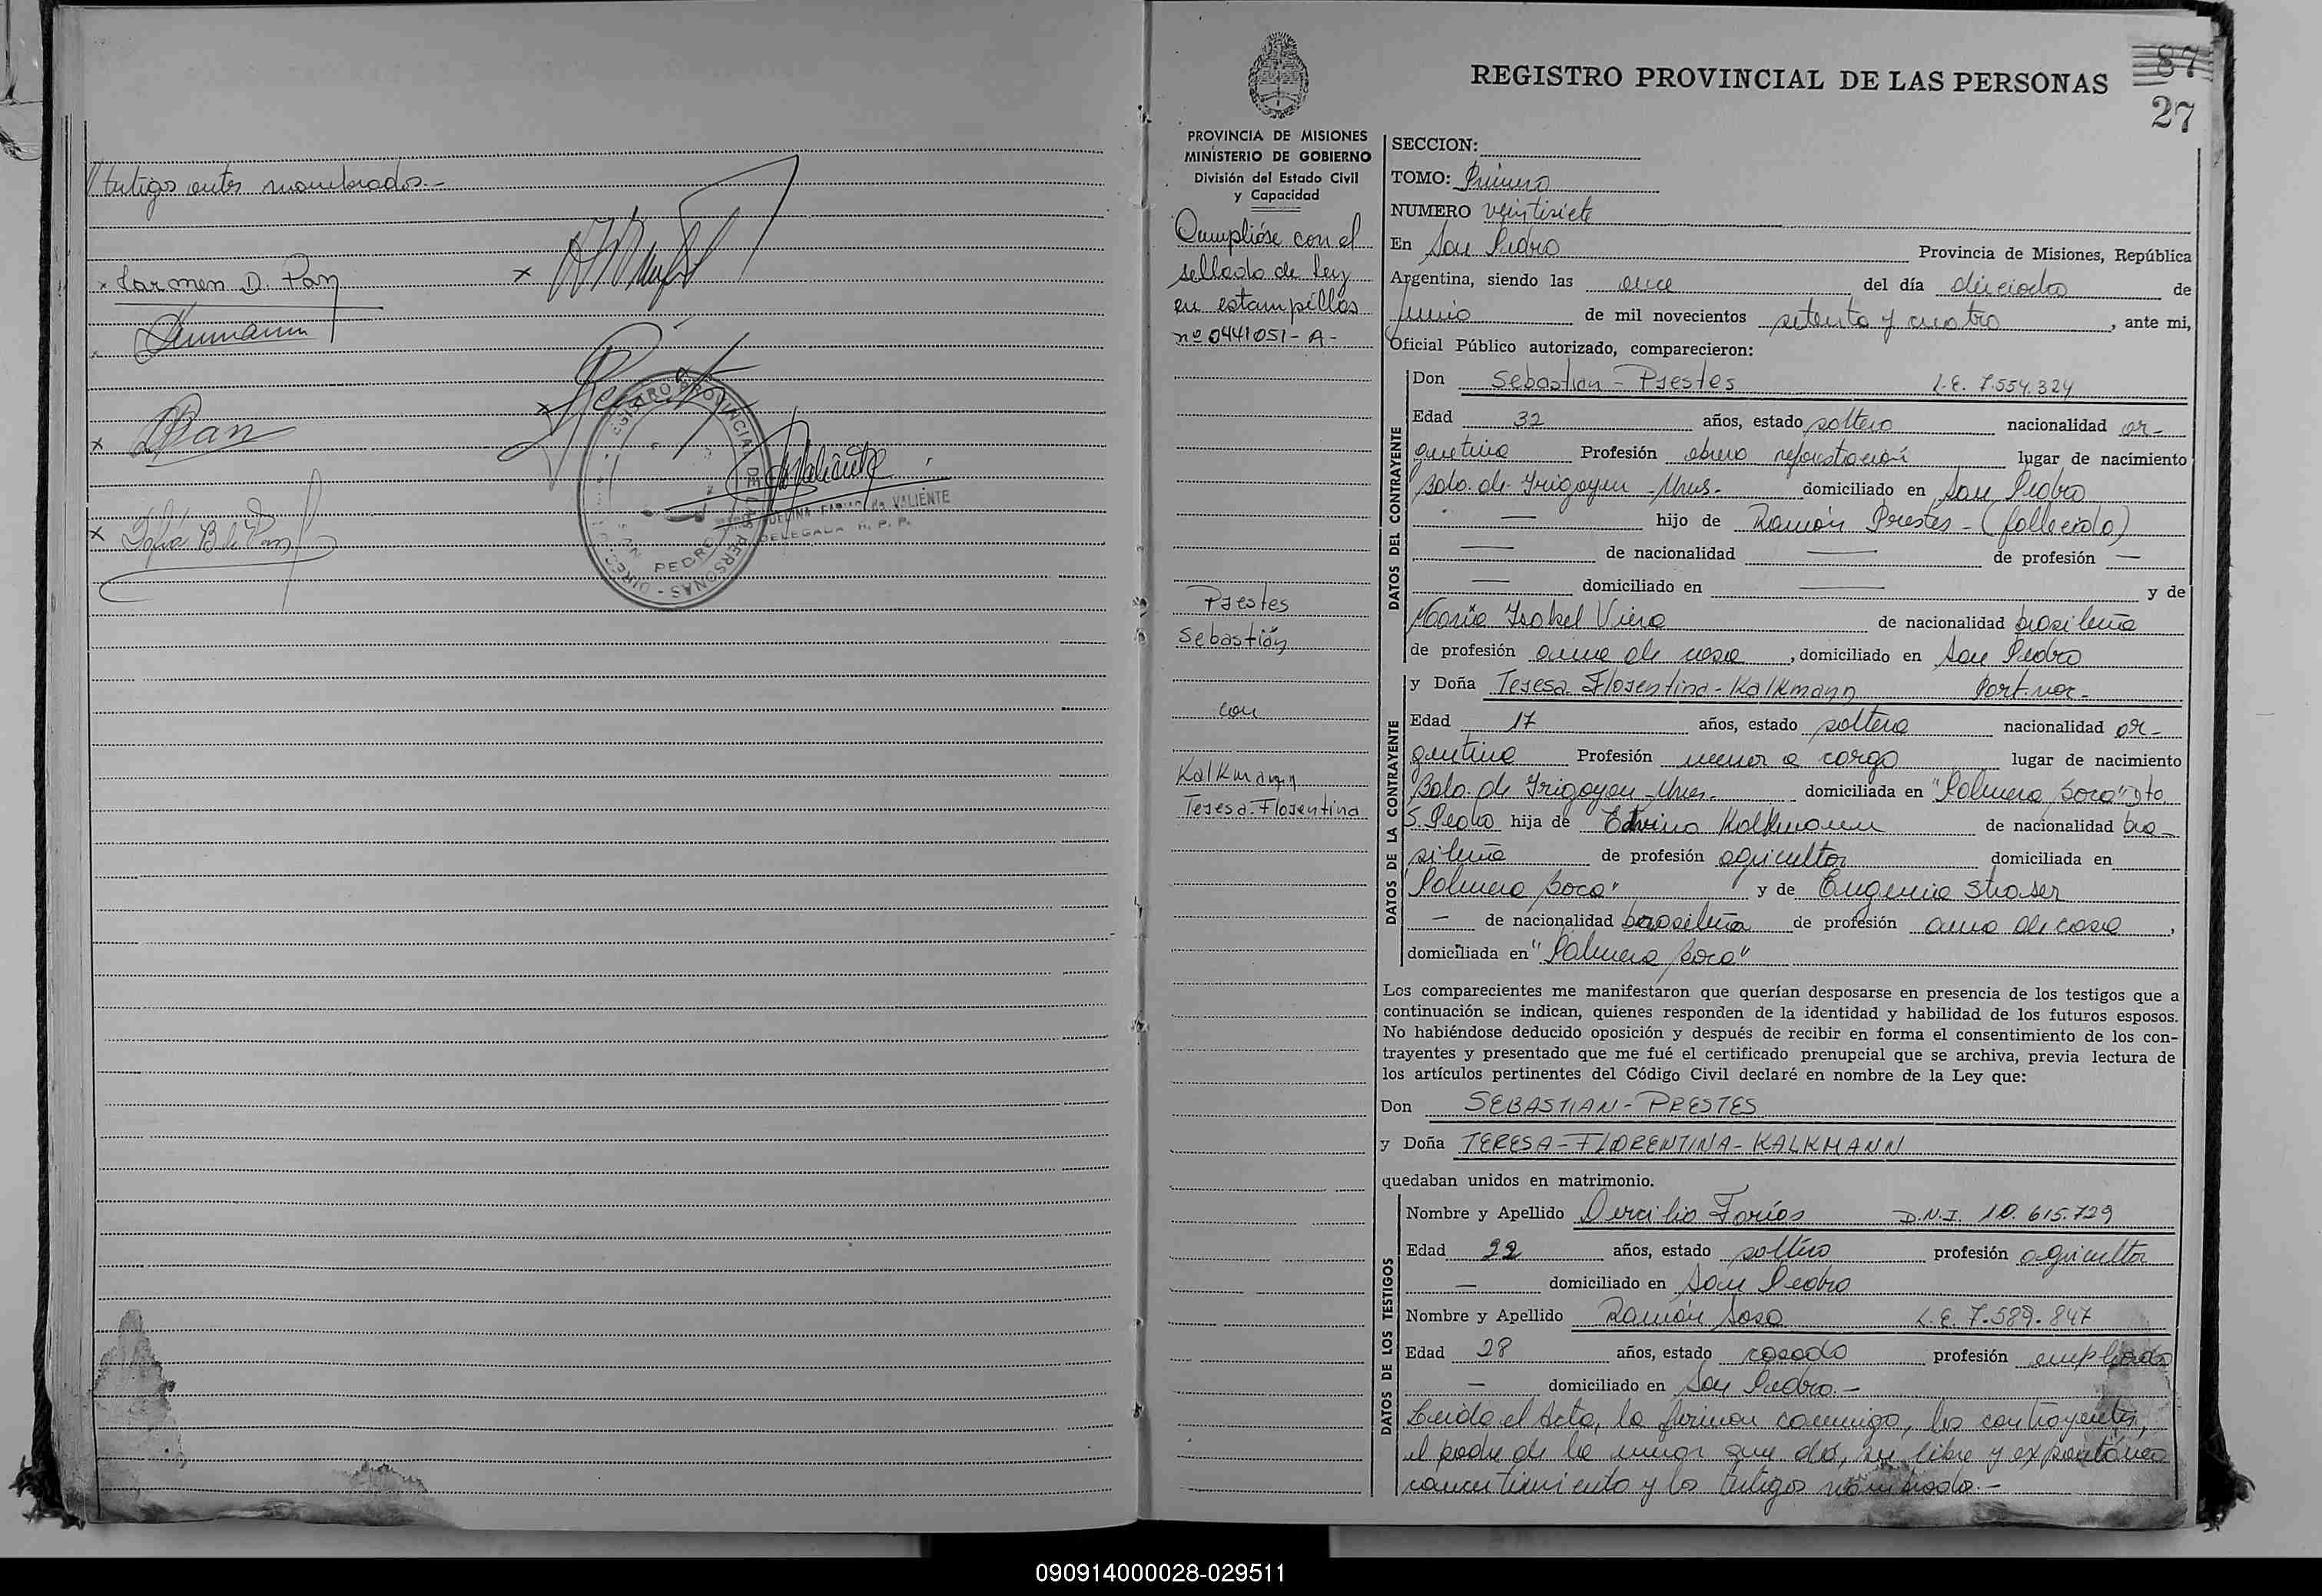 // testigos antes nombrados.-
x Carmen D. Pan
x
x
x
x
x Sofía B de Pan
REGISTRO PROVINCIAL DE LAS PERSONAS
SAN PEDRO
de VALIENTE
DELEGADA R. P. P.
REGISTRO PROVINCIAL DE LAS PERSONAS
87
27
PROVINCIA DE MISIONES
MINISTERIO DE GOBIERNO
División del Estado Civil
y Capacidad
Cumplióse con el
sellado de ley
en estampillas
nº 0441051-A-
Prestes
Sebastián
con
Kalkmann
Teresa-Florentina
SECCION:
TOMO: Primero
NUMERO veintisiete
En San Pedro Provincia de Misiones, República
Argentina, siendo las once del día dieciocho de
Junio de mil novecientos setenta y cuatro, ante mi,
Oficial Público autorizado, comparecieron:
DATOS DEL CONTRAYENTE
Don Sebastian - Prestes L.E. 7.554.324
Edad 32 años, estado soltero nacionalidad ar-
gentina Profesión obrero reforestación lugar de nacimiento
Bdo. de Irigoyen - Mnes. domiciliado en San Pedro
— hijo de Ramón Prestes - (fallecido)
— de nacionalidad — de profesión —
— domiciliado en — y de
María Isabel Viera de nacionalidad brasileña
de profesión ama de casa, domiciliado en San Pedro
DATOS DE LA CONTRAYENTE
y Doña Teresa Florentina - Kalkmann Part. nac-
Edad 17 años, estado soltera nacionalidad ar-
gentina Profesión menor a cargo lugar de nacimiento
Bdo. de Irigoyen - Mnes. domiciliada en "Palmera Boca" Dto.
S. Pedro hija de Edvino Kalkmann de nacionalidad bra-
sileña de profesión agricultor domiciliada en
"Palmera Boca" y de Eugenia Straser
— de nacionalidad brasileña de profesión ama de casa,
domiciliada en "Palmera Boca"
Los comparecientes me manifestaron que querían desposarse en presencia de los testigos que a
continuación se indican, quienes responden de la identidad y habilidad de los futuros esposos.
No habiéndose deducido oposición y después de recibir en forma el consentimiento de los con-
trayentes y presentado que me fué el certificado prenupcial que se archiva, previa lectura de
los artículos pertinentes del Código Civil declaré en nombre de la Ley que:
Don SEBASTIAN - PRESTES
y Doña TERESA - FLORENTINA - KALKMANN
quedaban unidos en matrimonio.
DATOS DE LOS TESTIGOS
Nombre y Apellido Dercilio Farias D.N.I. 10.615.729
Edad 22 años, estado soltero profesión agricultor
— domiciliado en San Pedro
Nombre y Apellido Ramón Sosa L.E. 7.589.847
Edad 28 años, estado casado profesión empleado
— domiciliado en San Pedro.-
Leída el Acta, la firman conmigo, los contrayentes,
el padre de la menor que dá, su libre y expontáneo
concentimiento y los testigos nombrados.-
090914000028-029511